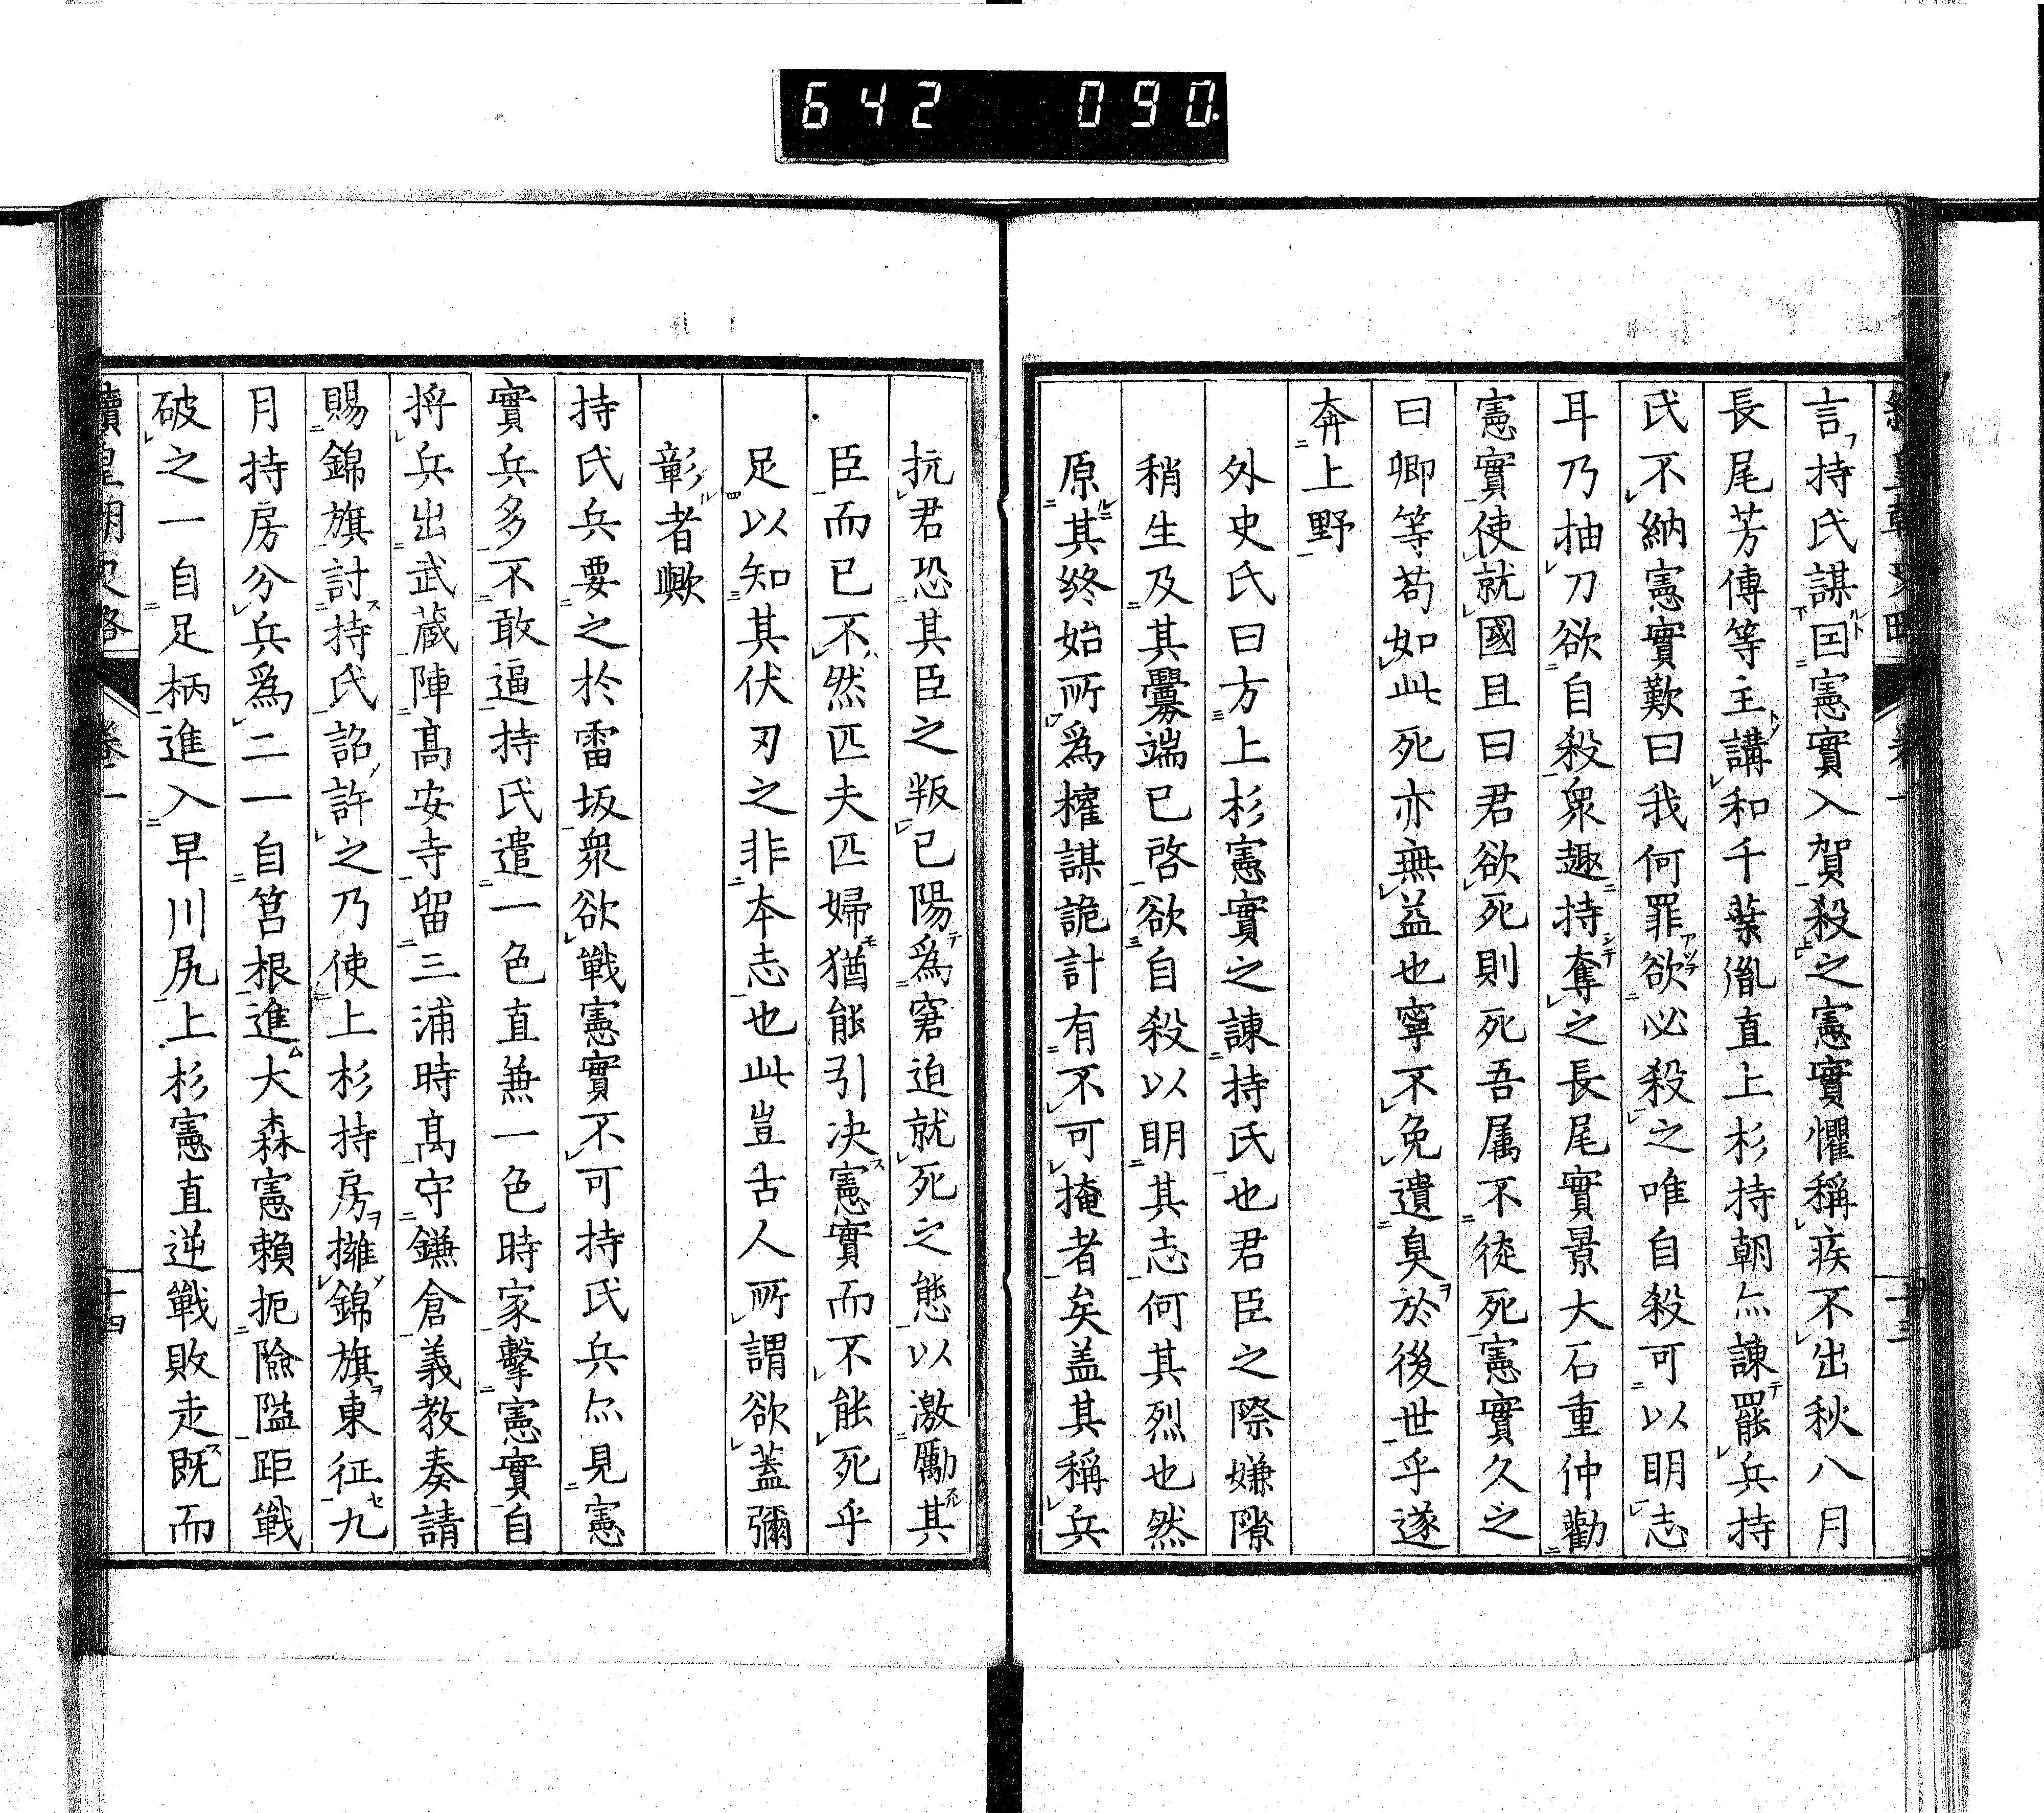 642 090.
續皇朝史略 卷一 十三
言持氏謀因憲實入賀殺之憲實懼稱疾不出秋八月
長尾芳傳等主講和千葉胤直上杉持朝亦諫罷兵持
氏不納憲實歎曰我何罪欲必殺之唯自殺可以明志
耳乃抽刀欲自殺衆趣持奪之長尾實景大石重仲勸
憲實使就國且曰君欲死則死吾属不徒死憲實久之
曰卿等苟如此死亦無益也寧不免遺臭於後世乎遂
奔上野
外史氏曰方上杉憲實之諫持氏也君臣之際嫌隙
稍生及其釁端已啓欲自殺以明其志何其烈也然
原其終始所為権謀詭計有不可掩者矣盖其稱兵
抗君恐其臣之叛已陽為窘迫就死之態以激勵其
臣而已不然匹夫匹婦猶能引决憲實而不能死乎
足以知其伏刃之非本志也此豈古人所謂欲蓋彌
彰者歟
持氏兵要之於雷坂衆欲戰憲實不可持氏兵亦見憲
實兵多不敢逼持氏遣一色直兼一色時家擊憲實自
将兵出武蔵陣高安寺留三浦時高守鎌倉義教奏請
賜錦旗討持氏詔許之乃使上杉持房擁錦旗東征九
月持房分兵為二一自筥根進大森憲頼扼險隘距戰
破之一自足柄進入早川尻上杉憲直逆戰敗走既而
續皇朝史略 卷一 十四